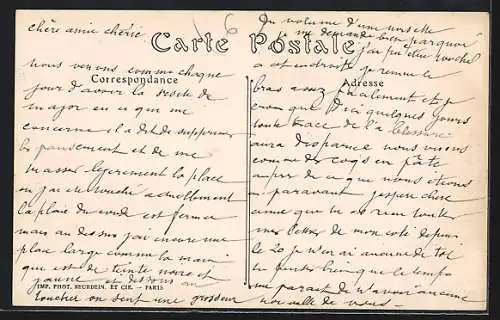 chère amie chérie
Carte Postale
Correspondance
nous venons comme chaque
jour d'avoir la visite de
major en ce qui me
concerne il a dit de supprimer
le pansement et de me
masser légèrement la place
où j'ai été touché actuellement
la plaie du coude est fermée
mais au dessus j'ai encore une
place large comme la main
qui est de teinte noire et
jaune et dessous au
IMP. PHOT. NEURDEIN. ET CIE. — PARIS
toucher on sent une grosseur
du volume d'une noisette
je me demande bien pourquoi
Adresse
a cet endroit je remue le
bras assez facilement et je
crois que d'ici quelques jours
toute trace de la blessure
aura disparue nous vivons
comme des coqs en pâte
auprès de ce que nous étions
auparavant j'espère chère
amie que tu as bien
mes lettres de mon côté depuis
le 20 je n'en ai aucune de toi
tu penses bien que le temps
me parait de n'avoir aucune
nouvelle de vous —